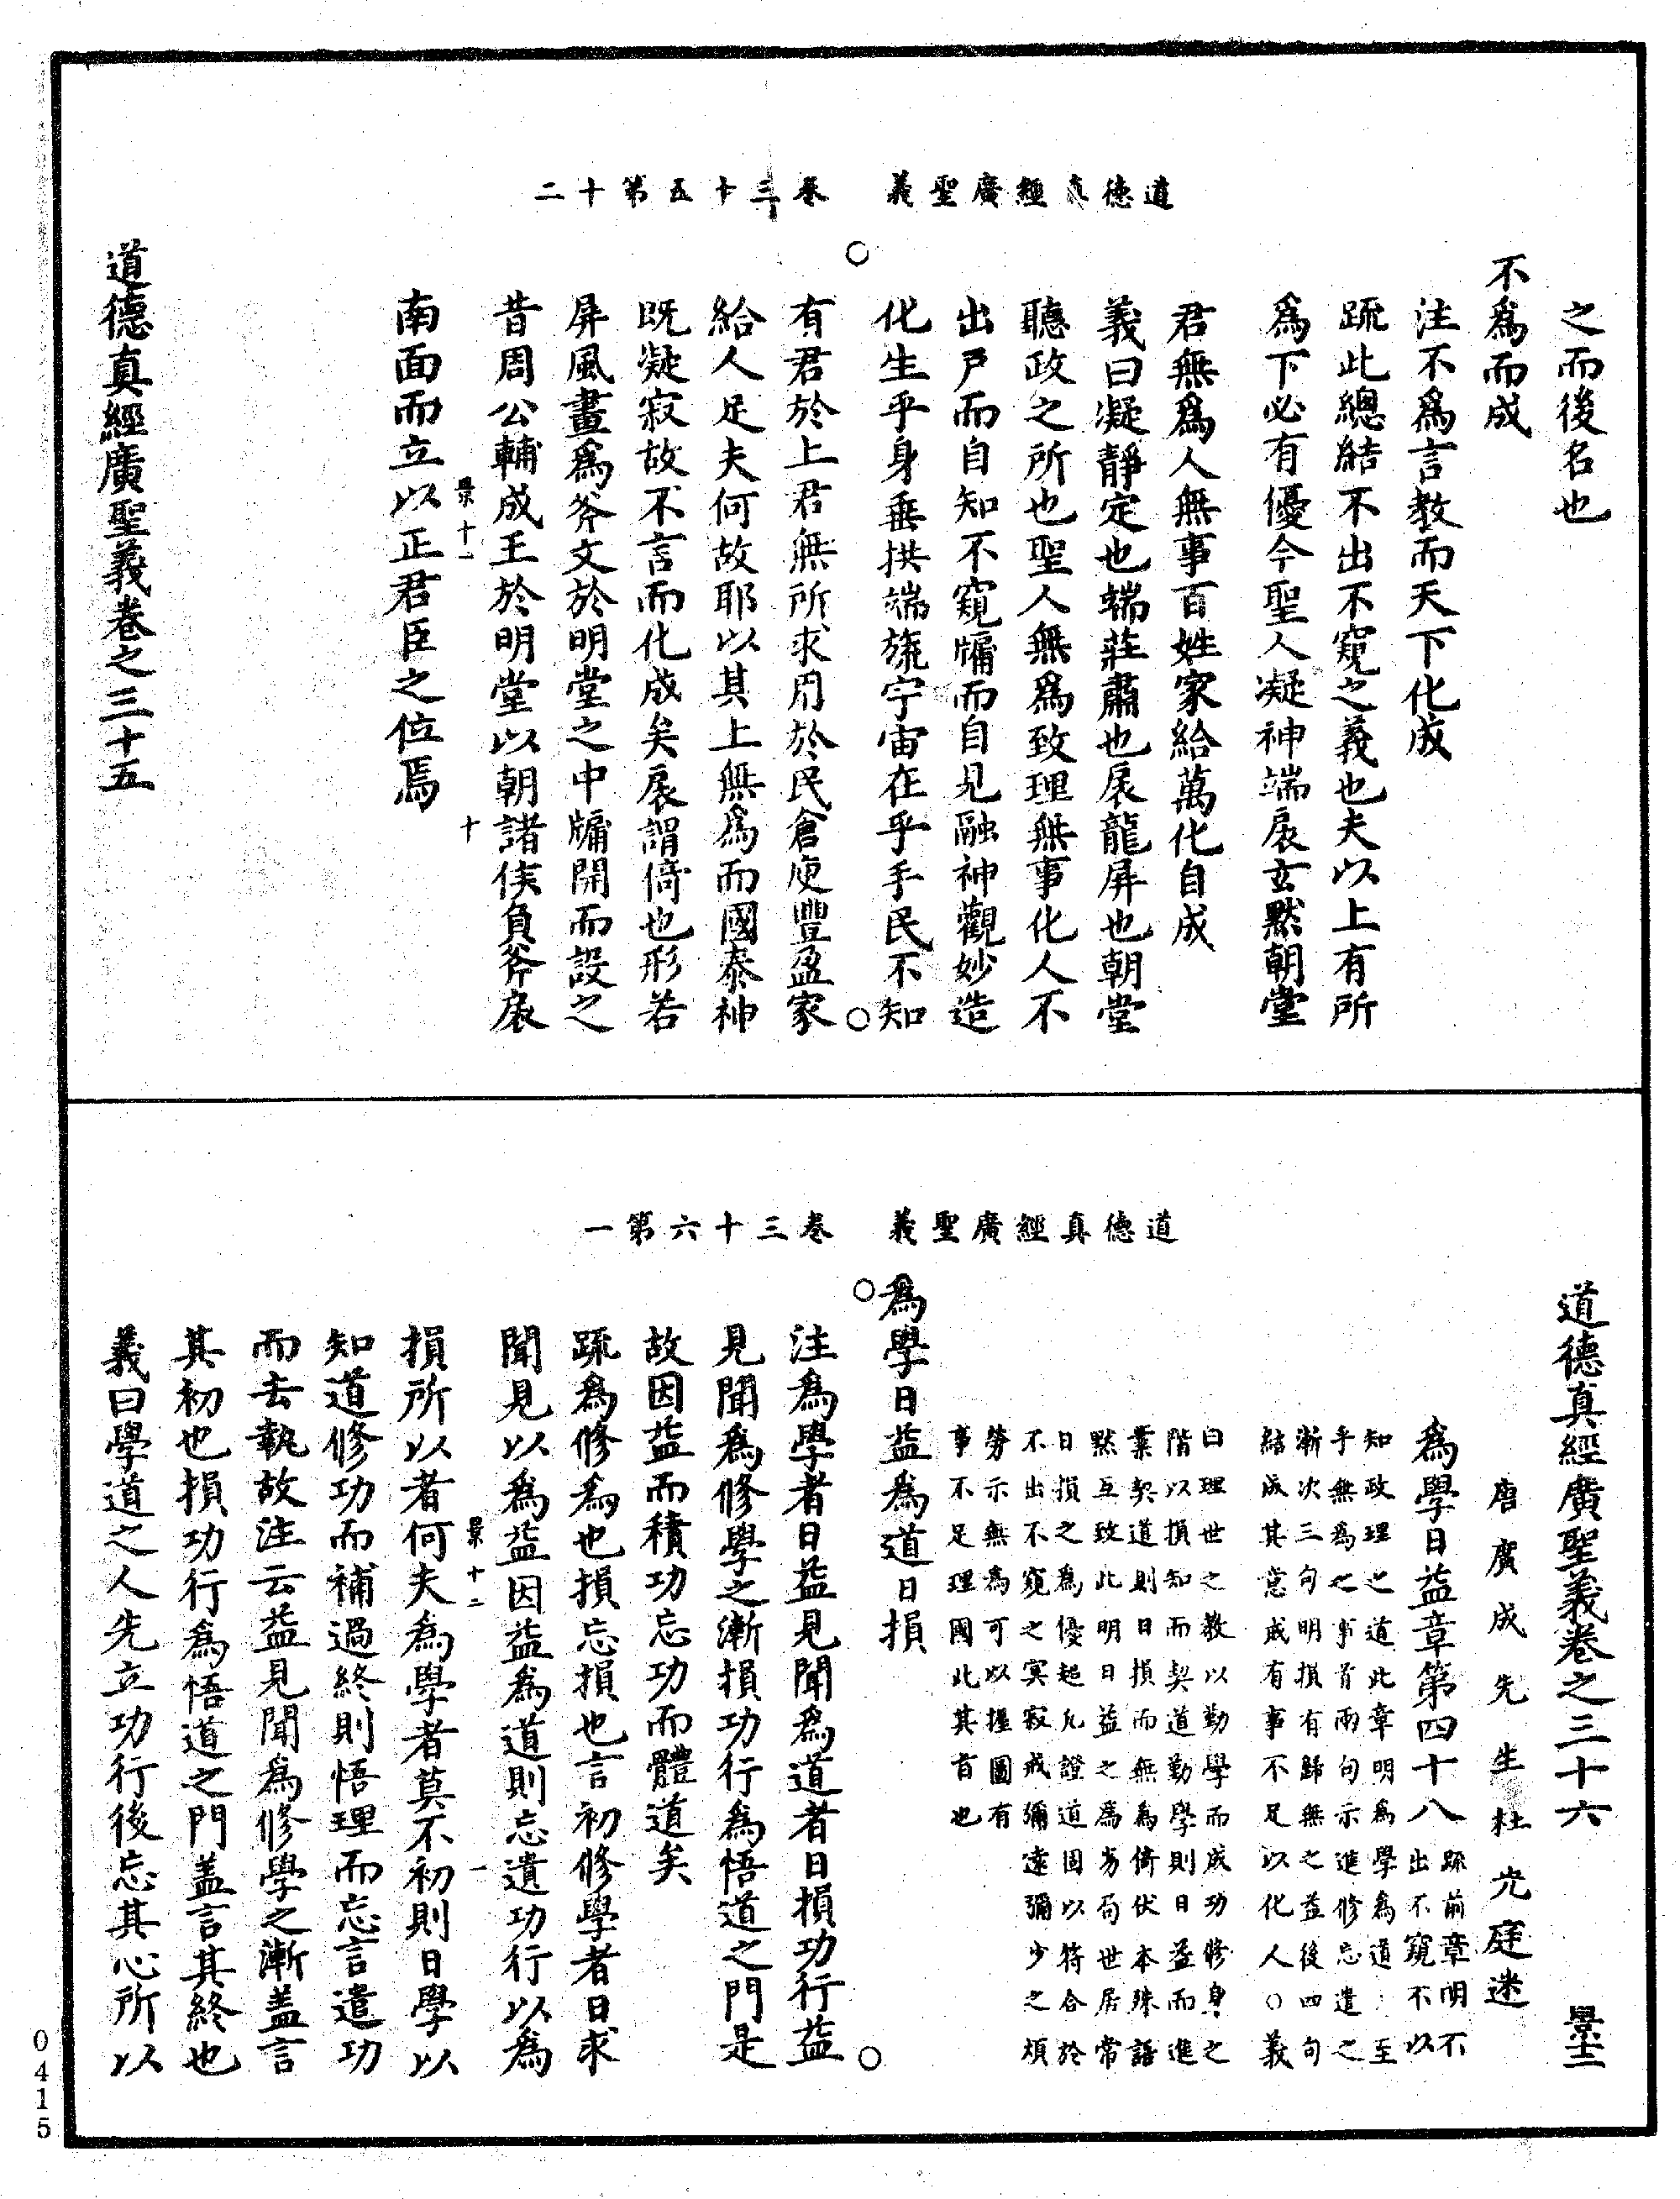 道德真經廣聖義　卷三十五第十二
之而後名也
不爲而成
注不爲言教而天下化成
疏此總結不出不窺之義也夫以上有所
爲下必有優今聖人凝神端扆玄默朝堂
君無爲人無事百姓家給萬化自成
義曰凝靜定也端莊肅也扆龍屏也朝堂
聽政之所也聖人無爲致理無事化人不
出戶而自知不窺牖而自見融神觀妙造
化生乎身垂拱端旒宇宙在乎手民不知
有君於上君無所求用於民倉庾豐盈家
給人足夫何故耶以其上無爲而國泰神
既凝寂故不言而化成矣扆謂倚也形若
屏風畫爲斧文於明堂之中牖開而設之
昔周公輔成王於明堂以朝諸侯負斧扆
景十一　十
南面而立以正君臣之位焉
道德真經廣聖義卷之三十五
道德真經廣聖義　卷三十六第一
道德真經廣聖義卷之三十六　景十二
唐廣成先生杜光庭述
爲學日益章第四十八
疏前章明不
出不窺不以
知政理之道此章明爲學爲道至
乎無爲之事首兩句示進修忘遣之
漸次三句明損有歸無之益後四句
結成其意戒有事不足以化人○義
曰理世之教以勤學而成功修身之
階以損知而契道勤學則日益而進
業契道則日損而無爲倚伏本殊語
默互致此明日益之爲劣局世居常
日損之爲優起凡證道因以符合於
不出不窺之寞寂戒彌遠彌少之煩
勞示無爲可以握圖有
事不足理國此其旨也
爲學日益爲道日損
注爲學者日益見聞爲道者日損功行益
見聞爲修學之漸損功行爲悟道之門是
故因益而積功忘功而體道矣
疏爲修爲也損忘損也言初修學者日求
聞見以爲益因益爲道則忘遺功行以爲
景十二　一
損所以者何夫爲學者莫不初則日學以
知道修功而補過終則悟理而忘言遣功
而去執故注云益見聞爲修學之漸盖言
其初也損功行爲悟道之門盖言其終也
義曰學道之人先立功行後忘其心所以
0415